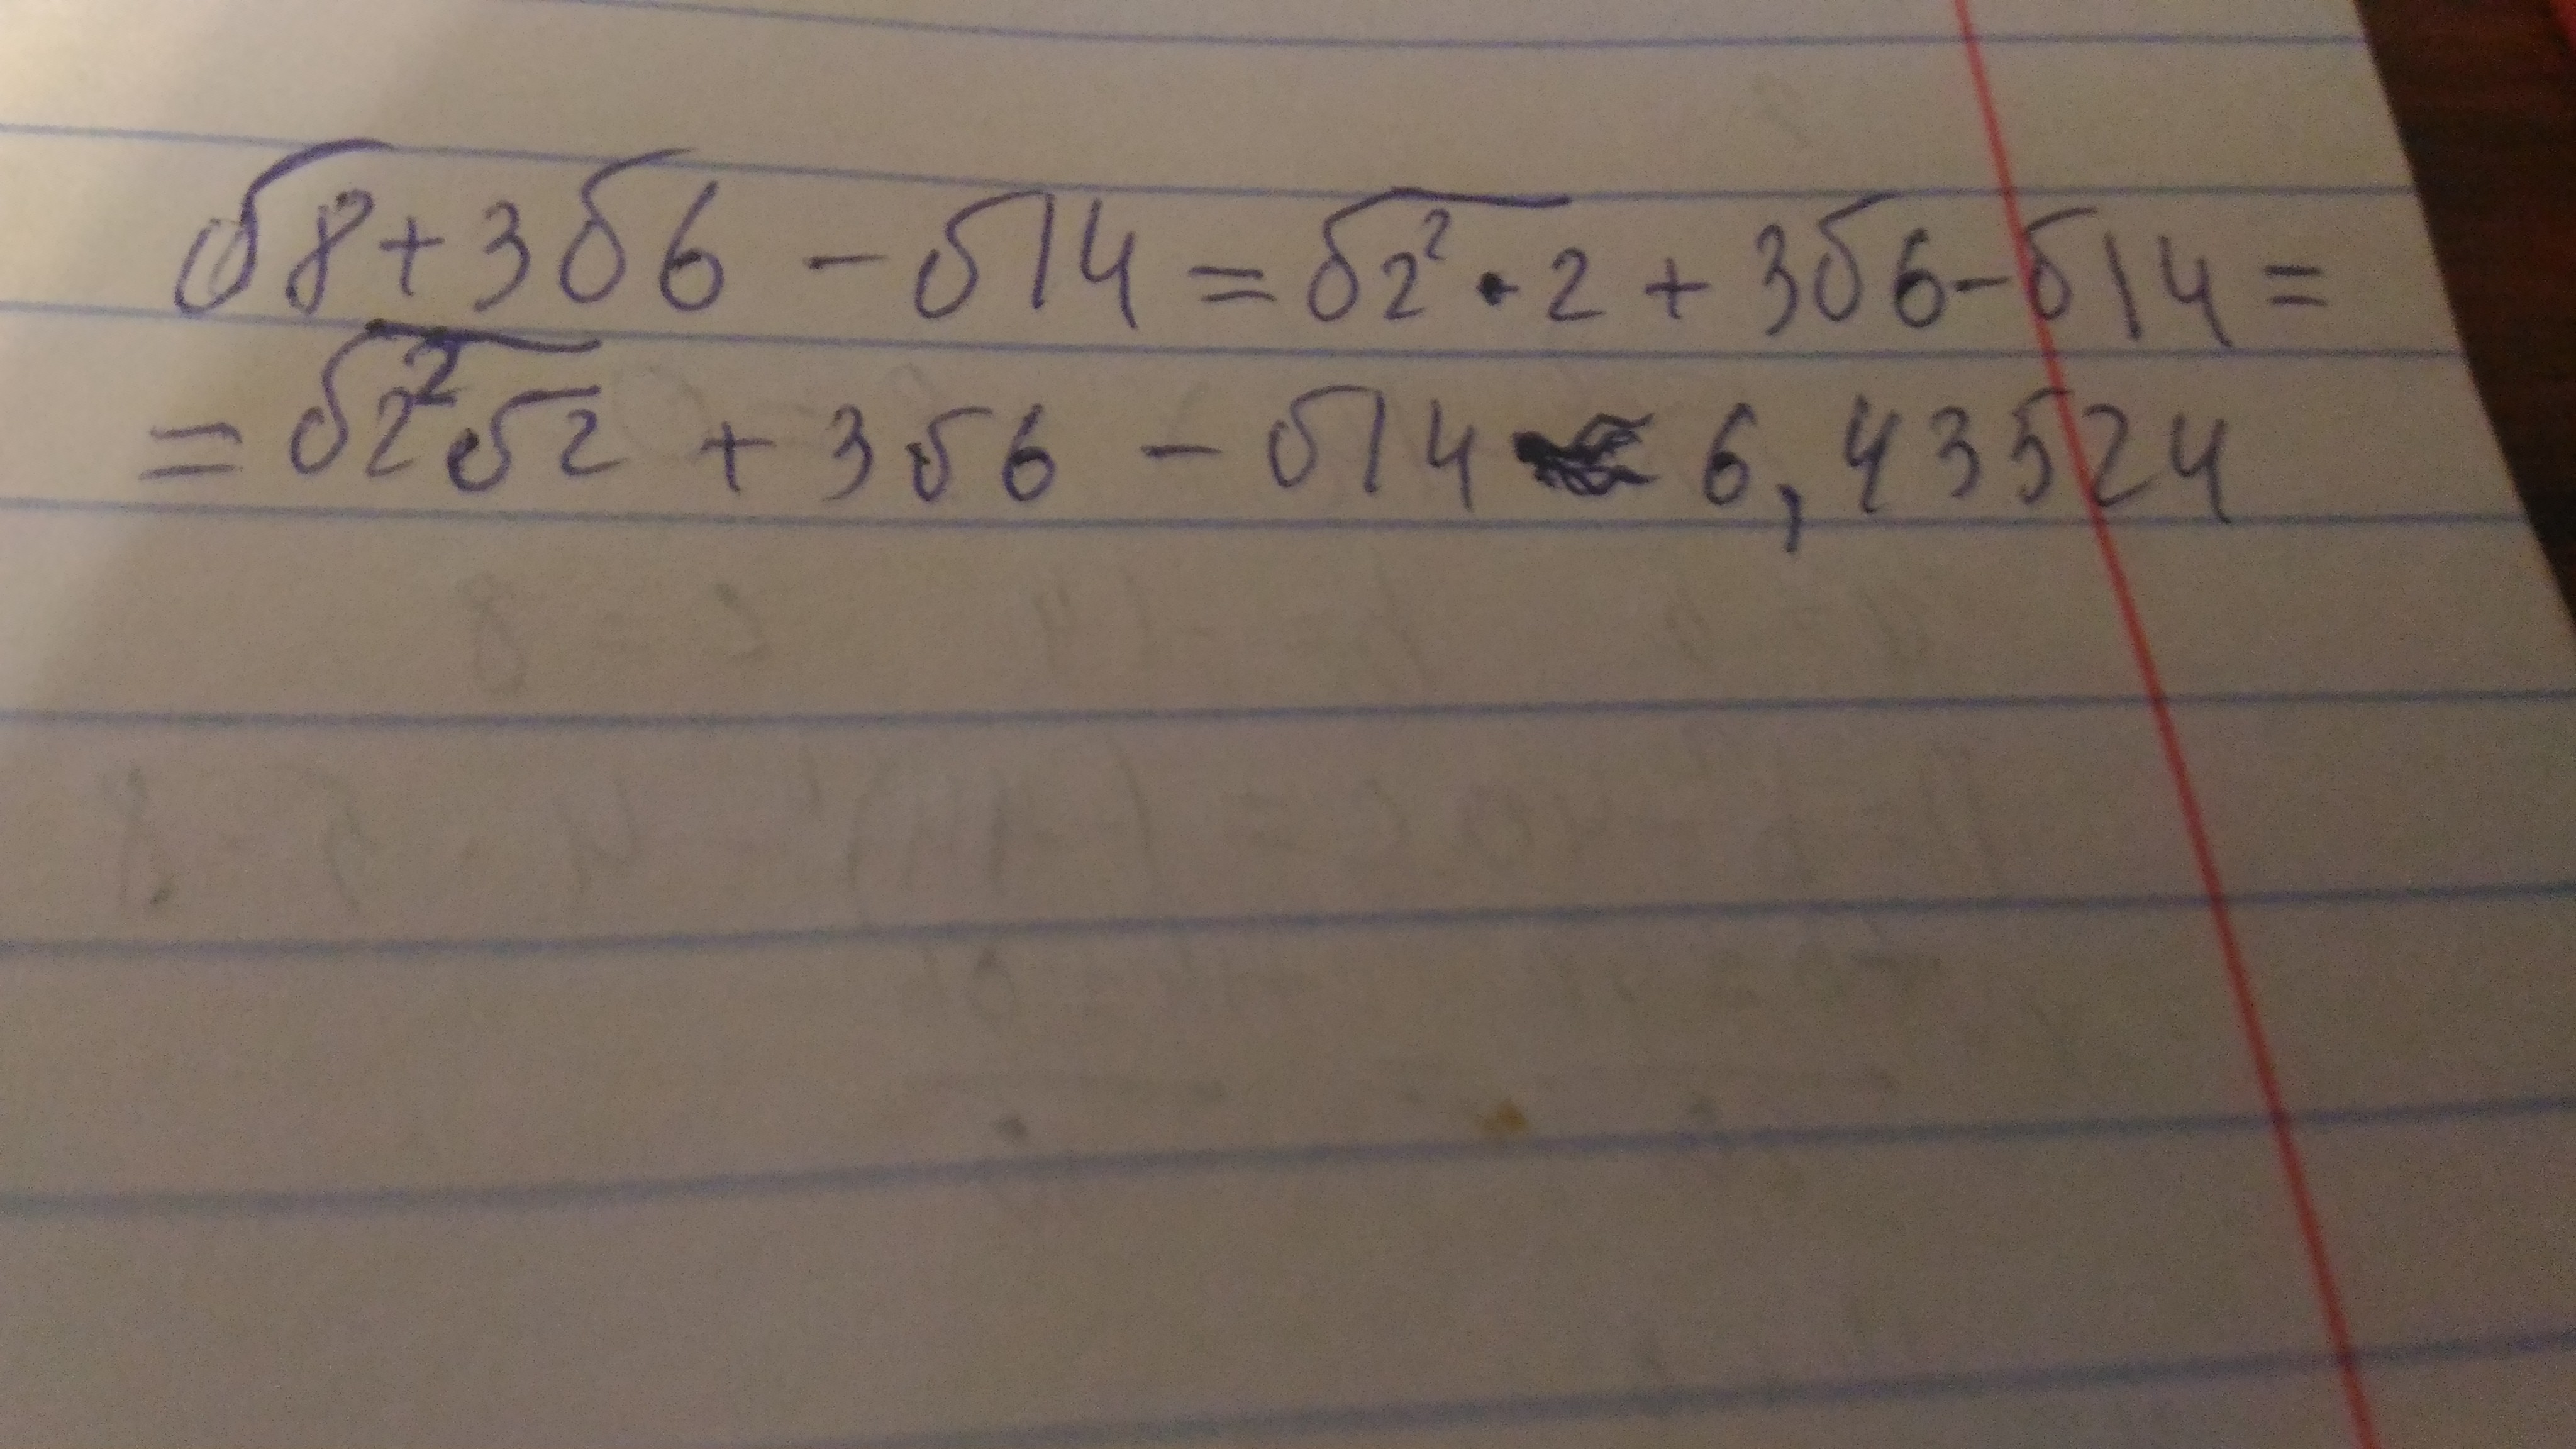 √8+3√6 - √14 = √2² · 2 + 3√6 - √14 =
= √2²√2 + 3√6 - √14 6,43524